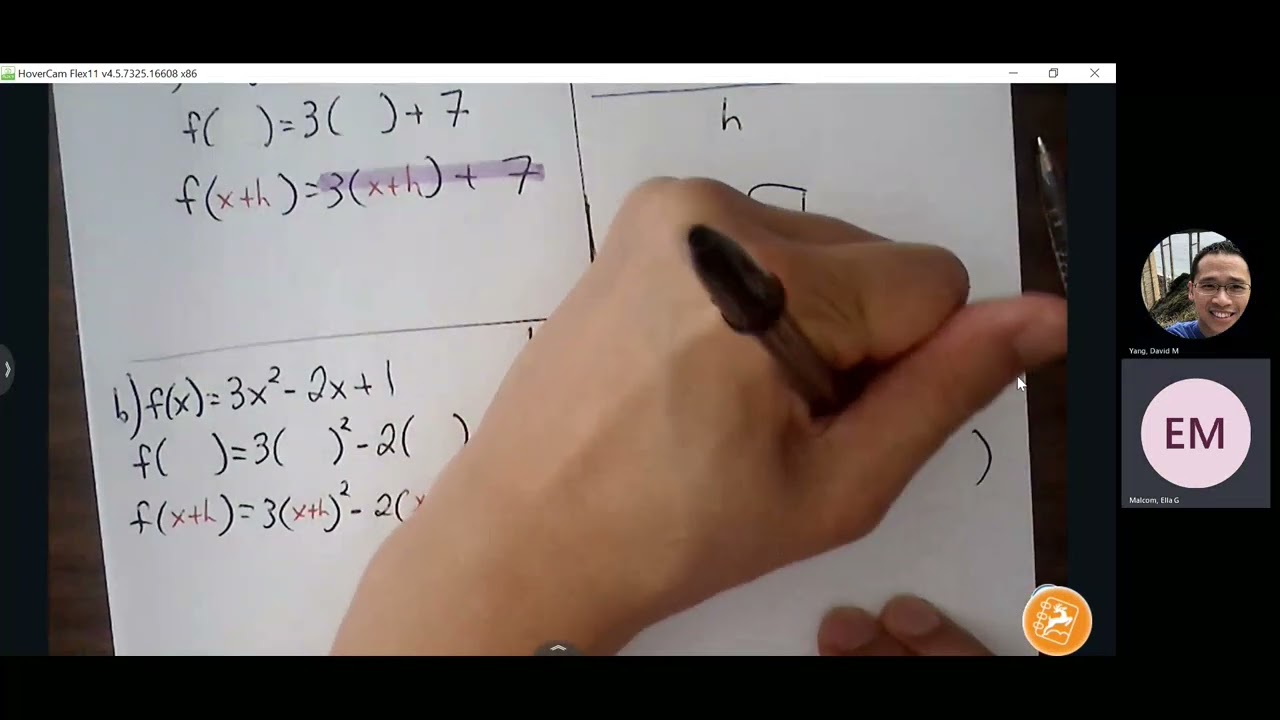 HoverCam Flex11 v4.5.7325.16608 x86
f( )=3( )+7
f(x+h)=3(x+h)+7
h
b) f(x)=3x²-2x+1
f( )=3( )²-2( )
f(x+h)=3(x+h)²-2(x
)
Yang, David M
EM
Malcom, Ella G